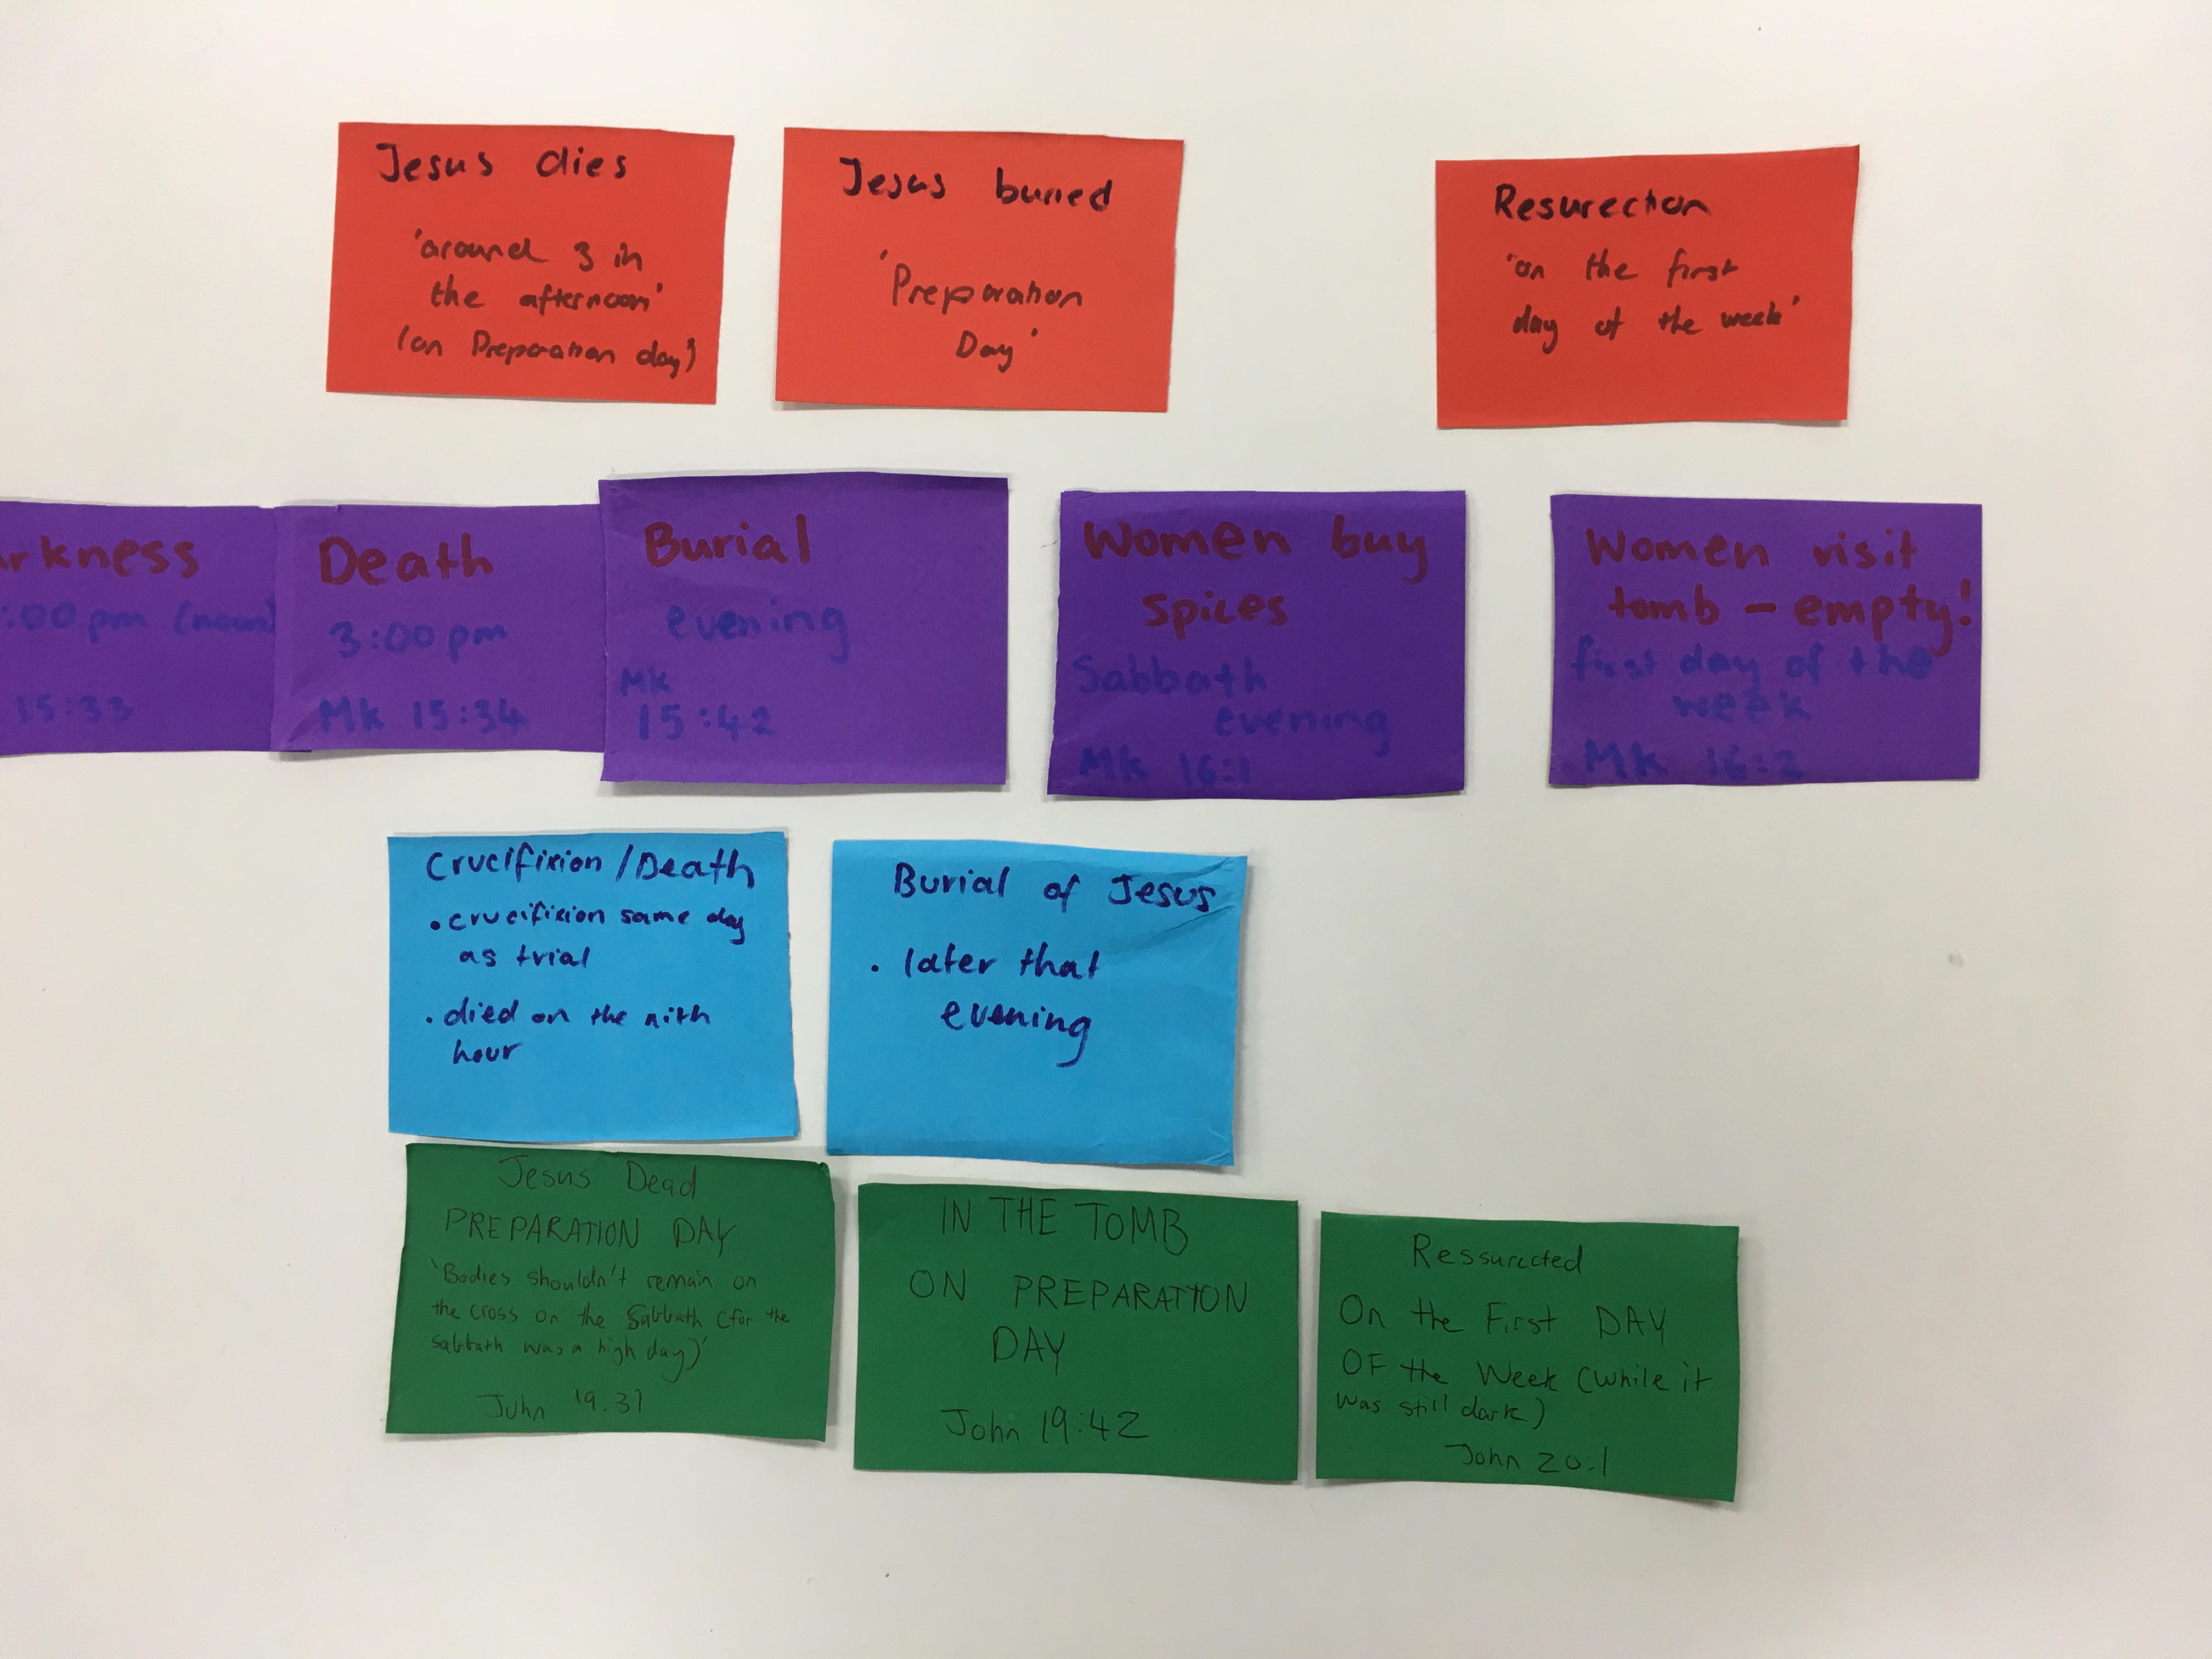 Jesus dies
'around 3 in
the afternoon'
(on Preparation day)
Jesus buried
'Preparation
Day'
Resurection
'on the first
day of the week'
rkness
:00pm (noon)
15:33
Death
3:00pm
Mk 15:34
Burial
evening
Mk
15:42
Women buy
spices
Sabbath
evening
Mk 16:1
Women visit
tomb - empty!
first day of the
week
Mk 16:2
Crucifixion/Death
• crucifixion same day
as trial
• died on the nith
hour
Burial of Jesus
• later that
evening
Jesus Dead
PREPARATION DAY
'Bodies shouldn't remain on
the cross on the Sabbath (for the
sabbath was a high day)'
John 19:31
IN THE TOMB
ON PREPARATION
DAY
John 19:42
Ressurected
On the First DAY
OF the Week (while it
was still dark)
John 20:1